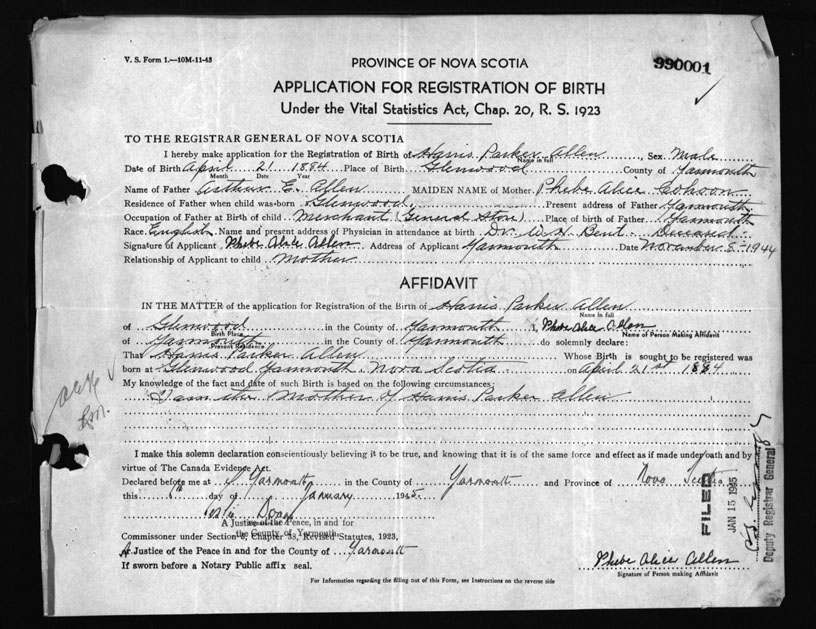 V. S. Form 1.—10M-11-43
PROVINCE OF NOVA SCOTIA
990001
APPLICATION FOR REGISTRATION OF BIRTH
Under the Vital Statistics Act, Chap. 20, R. S. 1923
TO THE REGISTRAR GENERAL OF NOVA SCOTIA
I hereby make application for the Registration of Birth of Harris Parker Allen, Sex Male
Name in full
Date of Birth April 21 1884 Place of Birth Glenwood County of Yarmouth
Month Date Year
Name of Father Arthur E. Allen MAIDEN NAME of Mother Phebe Alice Cohoon
Residence of Father when child was born Glenwood, Present address of Father Yarmouth
Occupation of Father at Birth of child Merchant (General Store) Place of birth of Father Yarmouth
Race English Name and present address of Physician in attendance at birth Dr. W. H. Bent - Deceased
Signature of Applicant Phebe Alice Allen Address of Applicant Yarmouth Date November 8-1944
Relationship of Applicant to child mother
AFFIDAVIT
IN THE MATTER of the application for Registration of the Birth of Harris Parker Allen
Name in full
of Glenwood in the County of Yarmouth I, Phebe Alice Allen
Birth Place
Name of Person Making Affidavit
of Yarmouth in the County of Yarmouth do solemnly declare:
Present Residence
That Harris Parker Allen Whose Birth is sought to be registered was
born at Glenwood Yarmouth Nova Scotia on April 21st 1884
My knowledge of the fact and date of such Birth is based on the following circumstances:
I am the Mother of Harris Parker Allen
I make this solemn declaration conscientiously believing it to be true, and knowing that it is of the same force and effect as if made under oath and by
virtue of The Canada Evidence Act.
Declared before me at Yarmouth in the County of Yarmouth and Province of Nova Scotia
this day of January 1945
A Justice of the Peace, in and for
the County of Yarmouth
Commissioner under Section 8, Chapter 38, Revised Statutes, 1923,
A Justice of the Peace in and for the County of Yarmouth
If sworn before a Notary Public affix seal.
Phebe Alice Allen
Signature of Person making Affidavit
For Information regarding the filling out of this Form, see Instructions on the reverse side
FILED
JAN 15 1945
Deputy Registrar General